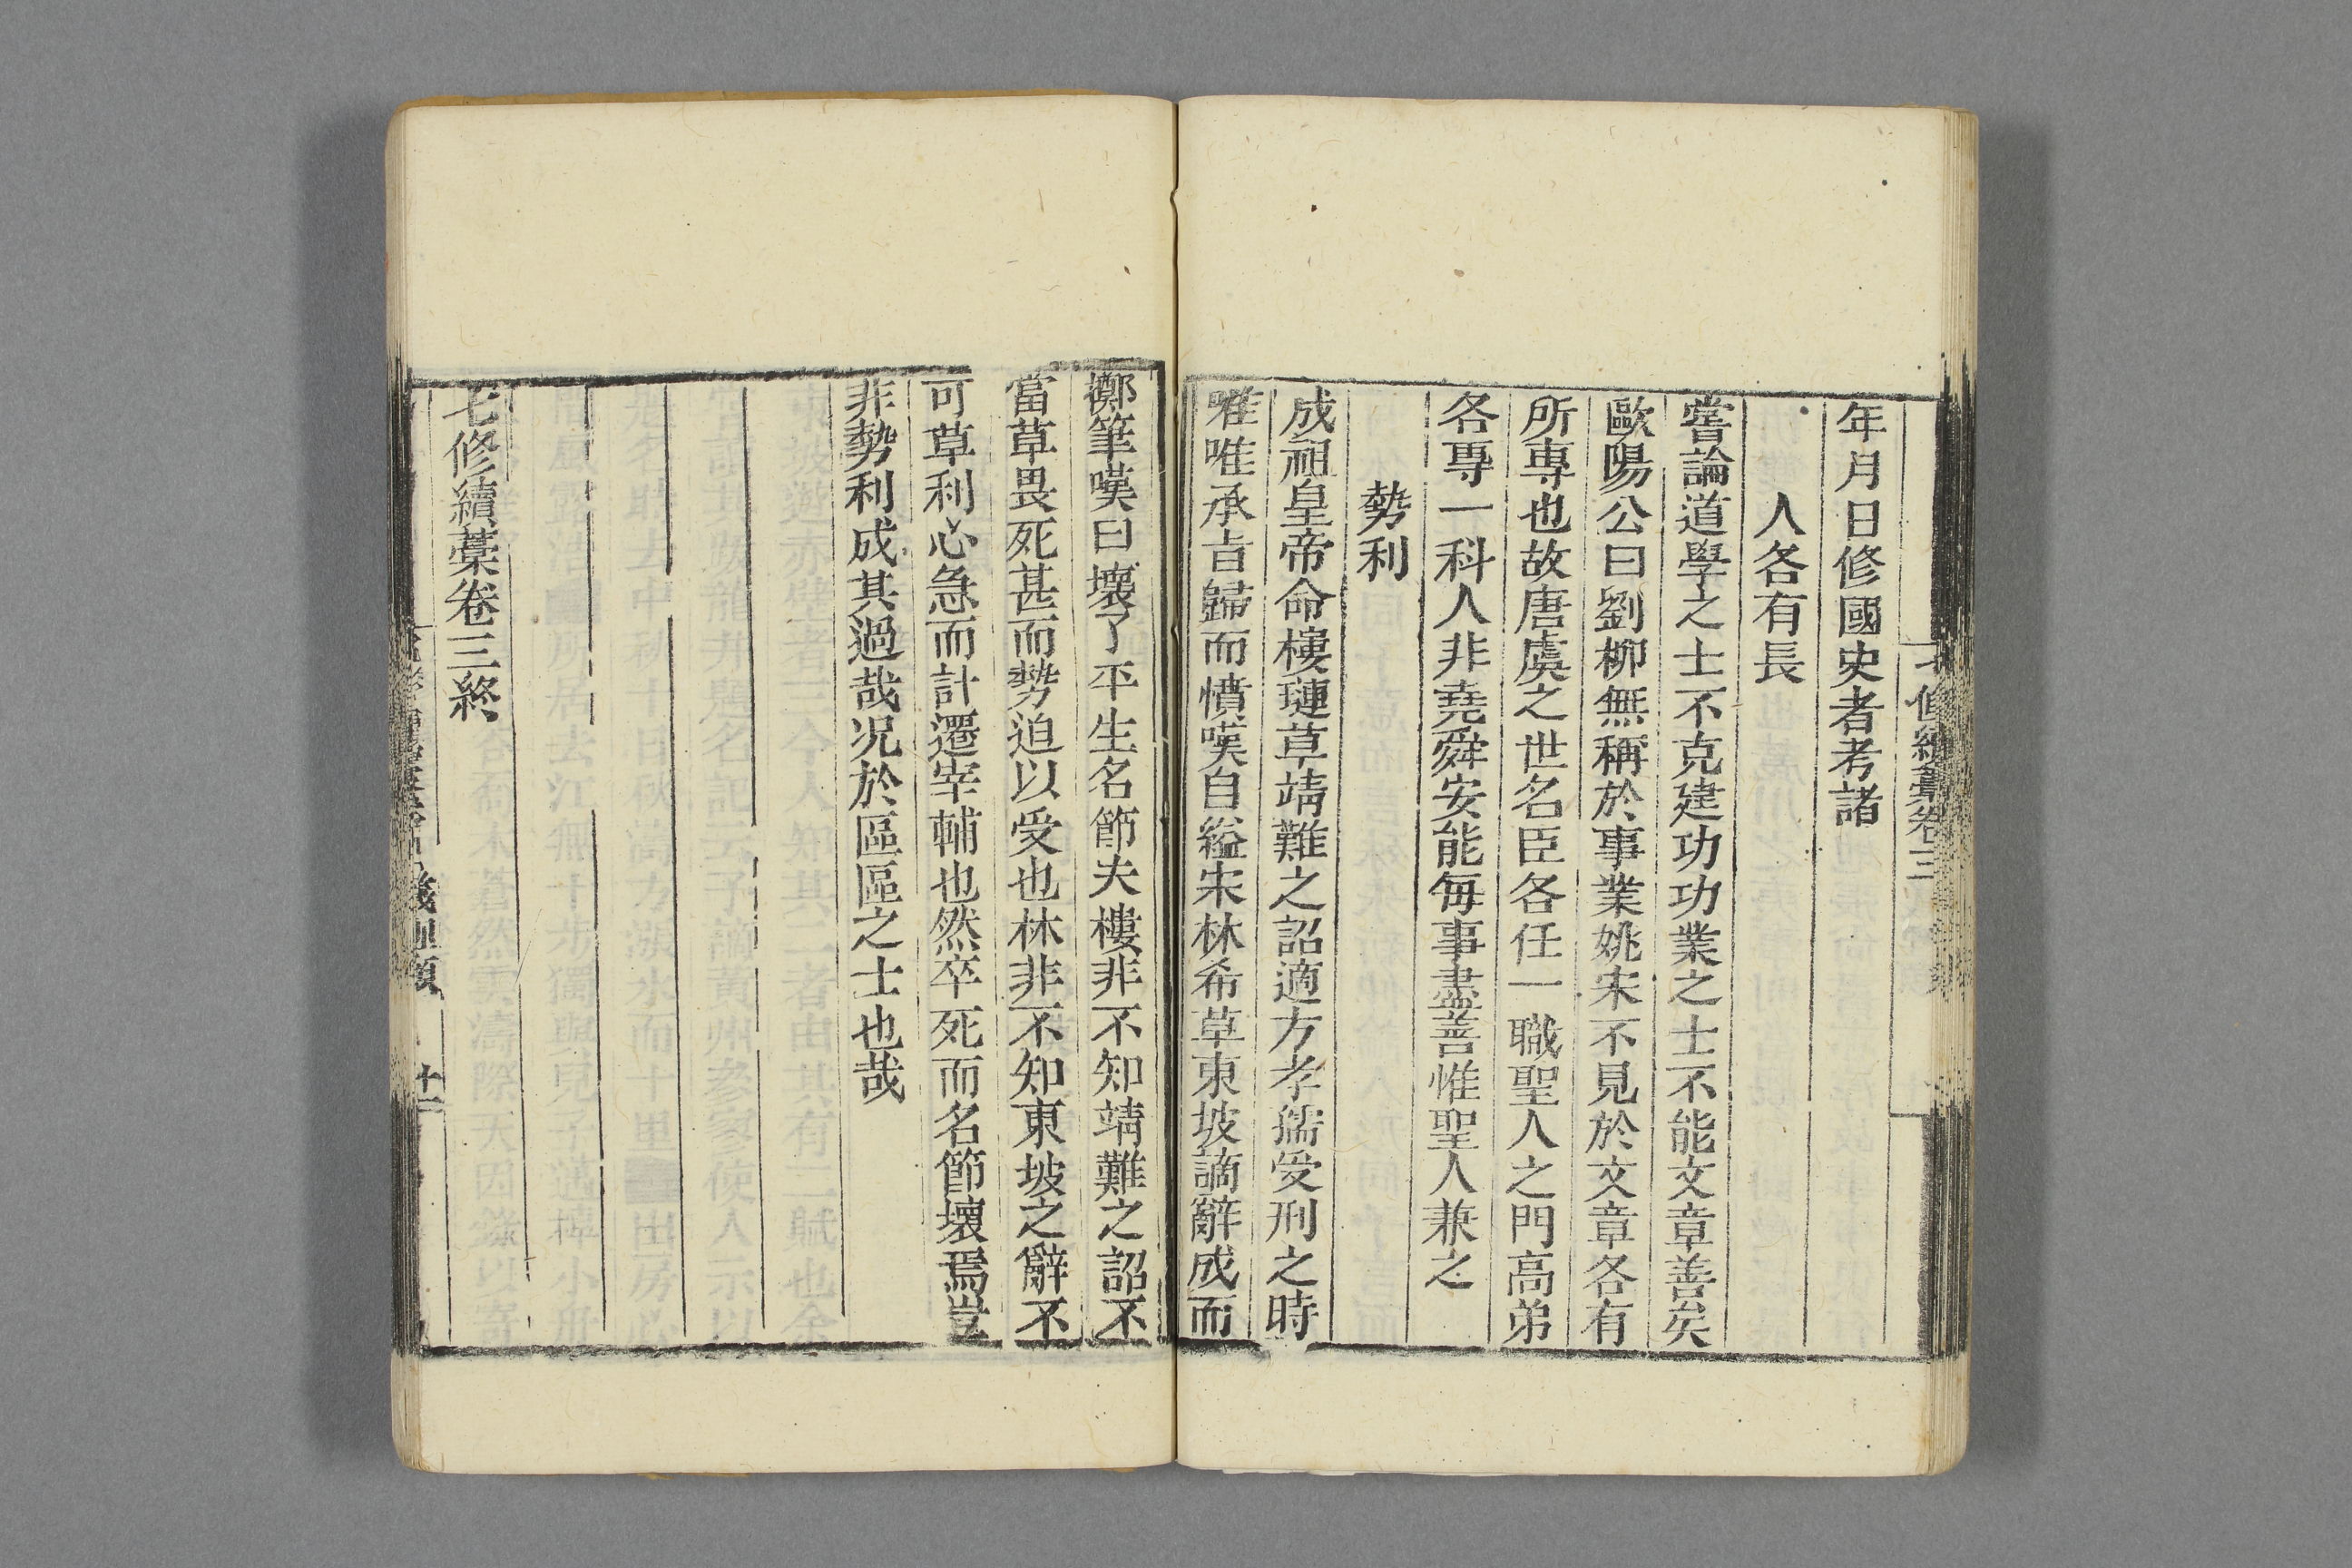 七修續藁卷三
年月日修國史者考諸
人各有長
嘗論道學之士不克建功功業之士不能文章善矣
歐陽公曰劉柳無稱於事業姚宋不見於文章各有
所專也故唐虞之世名臣各任一職聖人之門高弟
各専一科人非堯舜安能每事盡善惟聖人兼之
勢利
成祖皇帝命樓璉草靖難之詔適方孝孺受刑之時
唯唯承旨歸而憤嘆自縊宋林希草東坡謫辭成而
擲筆嘆曰壞了平生名節夫樓非不知靖難之詔不
當草畏死甚而勢迫以受也林非不知東坡之辭不
可草利心急而計遷宰輔也然卒死而名節壞焉豈
非勢利成其過哉况於區區之士也哉
七修續藁卷三終
義理類 十一